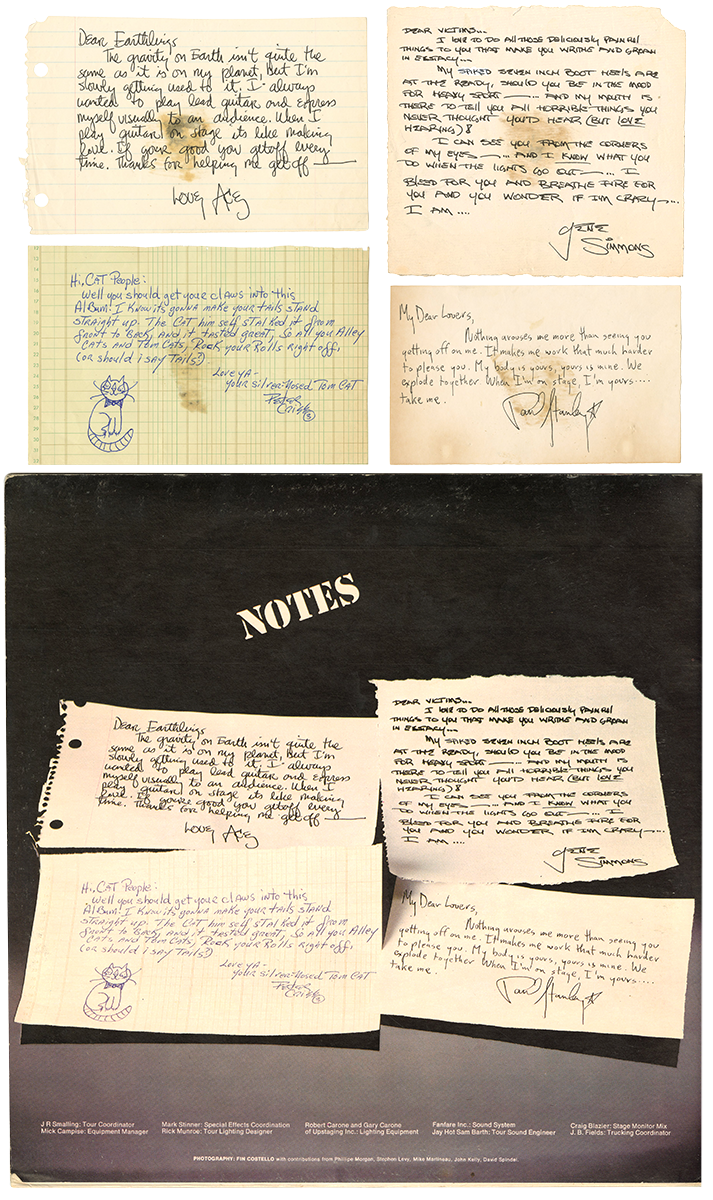 Dear Earthlings
The gravity on Earth isn't quite the
same as it is on my planet, but I'm
slowly getting used to it. I always
wanted to play lead guitar and express
myself visually to an audience. When I
play guitar on stage its like making
love. If you're good you get off every
time. Thanks for helping me get off
Love, Ace
DEAR VICTIMS...
I LOVE TO DO ALL THOSE DELICIOUSLY PAINFUL
THINGS TO YOU THAT MAKE YOU WRITHE AND GROAN
IN ECSTACY...
MY SPIKED SEVEN INCH BOOT HEELS ARE
AT THE READY, SHOULD YOU BE IN THE MOOD
FOR HEAVY SPORT ... AND MY MOUTH IS
THERE TO TELL YOU ALL HORRIBLE THINGS YOU
NEVER THOUGHT YOU'D HEAR (BUT LOVE
HEARING)!
I CAN SEE YOU FROM THE CORNERS
OF MY EYES ... AND I KNOW WHAT YOU
DO WHEN THE LIGHTS GO OUT ... I
BLEED FOR YOU AND BREATHE FIRE FOR
YOU AND YOU WONDER IF I'M CRAZY ...
I AM ....
GENE
SIMMONS
Hi, CAT People:
Well you should get your claws into this
Album! I know its gonna make your tails stand
straight up. The CAT him self stalked it from
front to back, and it tasted great, so all you Alley
Cats and Tom Cats, Rock your Rolls right off,
(or should i say Tails?)
Love ya-
your silver-nosed Tom CAT
Peter
Criss
My Dear Lovers,
Nothing arouses me more than seeing you
getting off on me. It makes me work that much harder
to please you. My body is yours, yours is mine. We
explode together. When I'm on stage, I'm yours....
take me.
Paul Stanley
NOTES
Dear Earthlings
The gravity on Earth isn't quite the
same as it is on my planet, but I'm
slowly getting used to it. I always
wanted to play lead guitar and express
myself visually to an audience. When I
play guitar on stage its like making
love. If you're good you get off every
time. Thanks for helping me get off
Love, Ace
DEAR VICTIMS...
I LOVE TO DO ALL THOSE DELICIOUSLY PAINFUL
THINGS TO YOU THAT MAKE YOU WRITHE AND GROAN
IN ECSTACY...
MY SPIKED SEVEN INCH BOOT HEELS ARE
AT THE READY, SHOULD YOU BE IN THE MOOD
FOR HEAVY SPORT ... AND MY MOUTH IS
THERE TO TELL YOU ALL HORRIBLE THINGS YOU
NEVER THOUGHT YOU'D HEAR (BUT LOVE
HEARING)!
I CAN SEE YOU FROM THE CORNERS
OF MY EYES ... AND I KNOW WHAT YOU
DO WHEN THE LIGHTS GO OUT ... I
BLEED FOR YOU AND BREATHE FIRE FOR
YOU AND YOU WONDER IF I'M CRAZY ...
I AM ....
GENE
SIMMONS
Hi, CAT People:
Well you should get your claws into this
Album! I know its gonna make your tails stand
straight up. The CAT him self stalked it from
front to back, and it tasted great, so all you Alley
Cats and Tom Cats, Rock your Rolls right off,
(or should i say Tails?)
Love ya-
your silver-nosed Tom CAT
Peter
Criss
My Dear Lovers,
Nothing arouses me more than seeing you
getting off on me. It makes me work that much harder
to please you. My body is yours, yours is mine. We
explode together. When I'm on stage, I'm yours....
take me.
Paul Stanley
J R Smalling: Tour Coordinator
Mick Campise: Equipment Manager
Mark Stinner: Special Effects Coordination
Rick Munroe: Tour Lighting Designer
Robert Carone and Gary Carone
of Upstaging Inc.: Lighting Equipment
Fanfare Inc.: Sound System
Jay Hot Sam Barth: Tour Sound Engineer
Craig Blazier: Stage Monitor Mix
J. B. Fields: Trucking Coordinator
PHOTOGRAPHY: FIN COSTELLO with contributions from Phillipe Morgan, Stephen Levy, Mike Martineau, John Kelly, David Spindel.